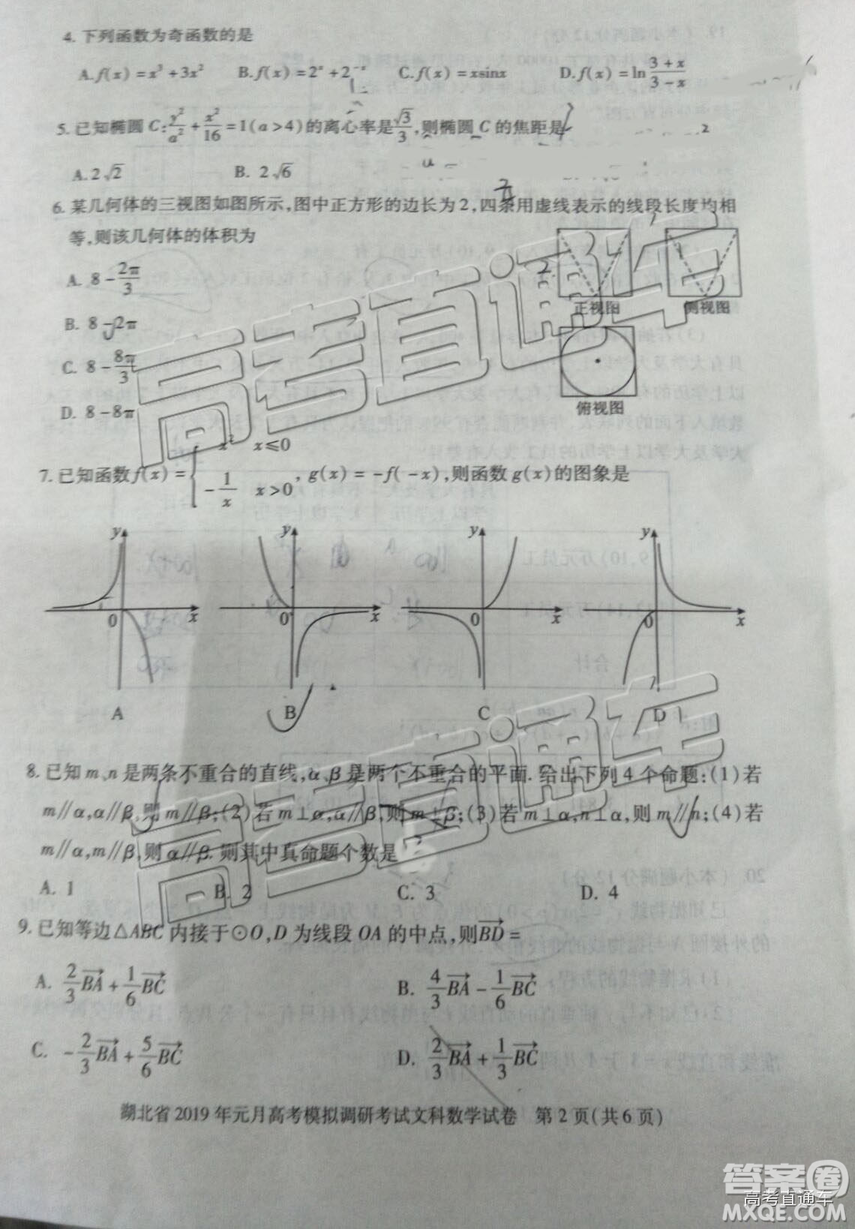 4. 下列函数为奇函数的是
A. f(x) = x³ + 3x² B. f(x) = 2ˣ + 2⁻ˣ C. f(x) = xsinx D. f(x) = ln (3 + x)/(3 - x)
5. 已知椭圆 C: y²/a² + x²/16 = 1(a > 4)的离心率是 √3/3, 则椭圆 C 的焦距是
A. 2√2 B. 2√6
6. 某几何体的三视图如图所示,图中正方形的边长为 2,四条用虚线表示的线段长度均相
等,则该几何体的体积为
A. 8 - 2π/3
B. 8 - 2π
C. 8 - 8π/3
D. 8 - 8π
正视图 侧视图
俯视图
7. 已知函数 f(x) = { x² x≤0
-1/x x>0 , g(x) = -f(-x),则函数 g(x)的图象是
y y y y
0 x 0 x 0 x 0 x
A B C D
8. 已知 m、n 是两条不重合的直线,α、β 是两个不重合的平面. 给出下列 4 个命题:(1)若
m∥α,α∥β,则 m∥β;(2)若 m⊥α,α∥β,则 m⊥β;(3)若 m⊥α,n⊥α,则 m∥n;(4)若
m∥α,m∥β,则 α∥β. 则其中真命题个数是
A. 1 B. 2 C. 3 D. 4
9. 已知等边△ABC 内接于⊙O,D 为线段 OA 的中点,则 BD→ =
A. 2/3 BA→ + 1/6 BC→ B. 4/3 BA→ - 1/6 BC→
C. -2/3 BA→ + 5/6 BC→ D. 2/3 BA→ + 1/3 BC→
湖北省 2019 年元月高考模拟调研考试文科数学试卷 第 2 页(共 6 页)
高考直通车
高考直通车
答案圈
高考直通车
MXQE.COM